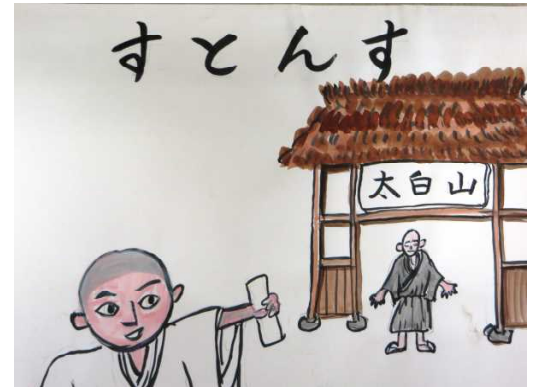 すとんす
太白山